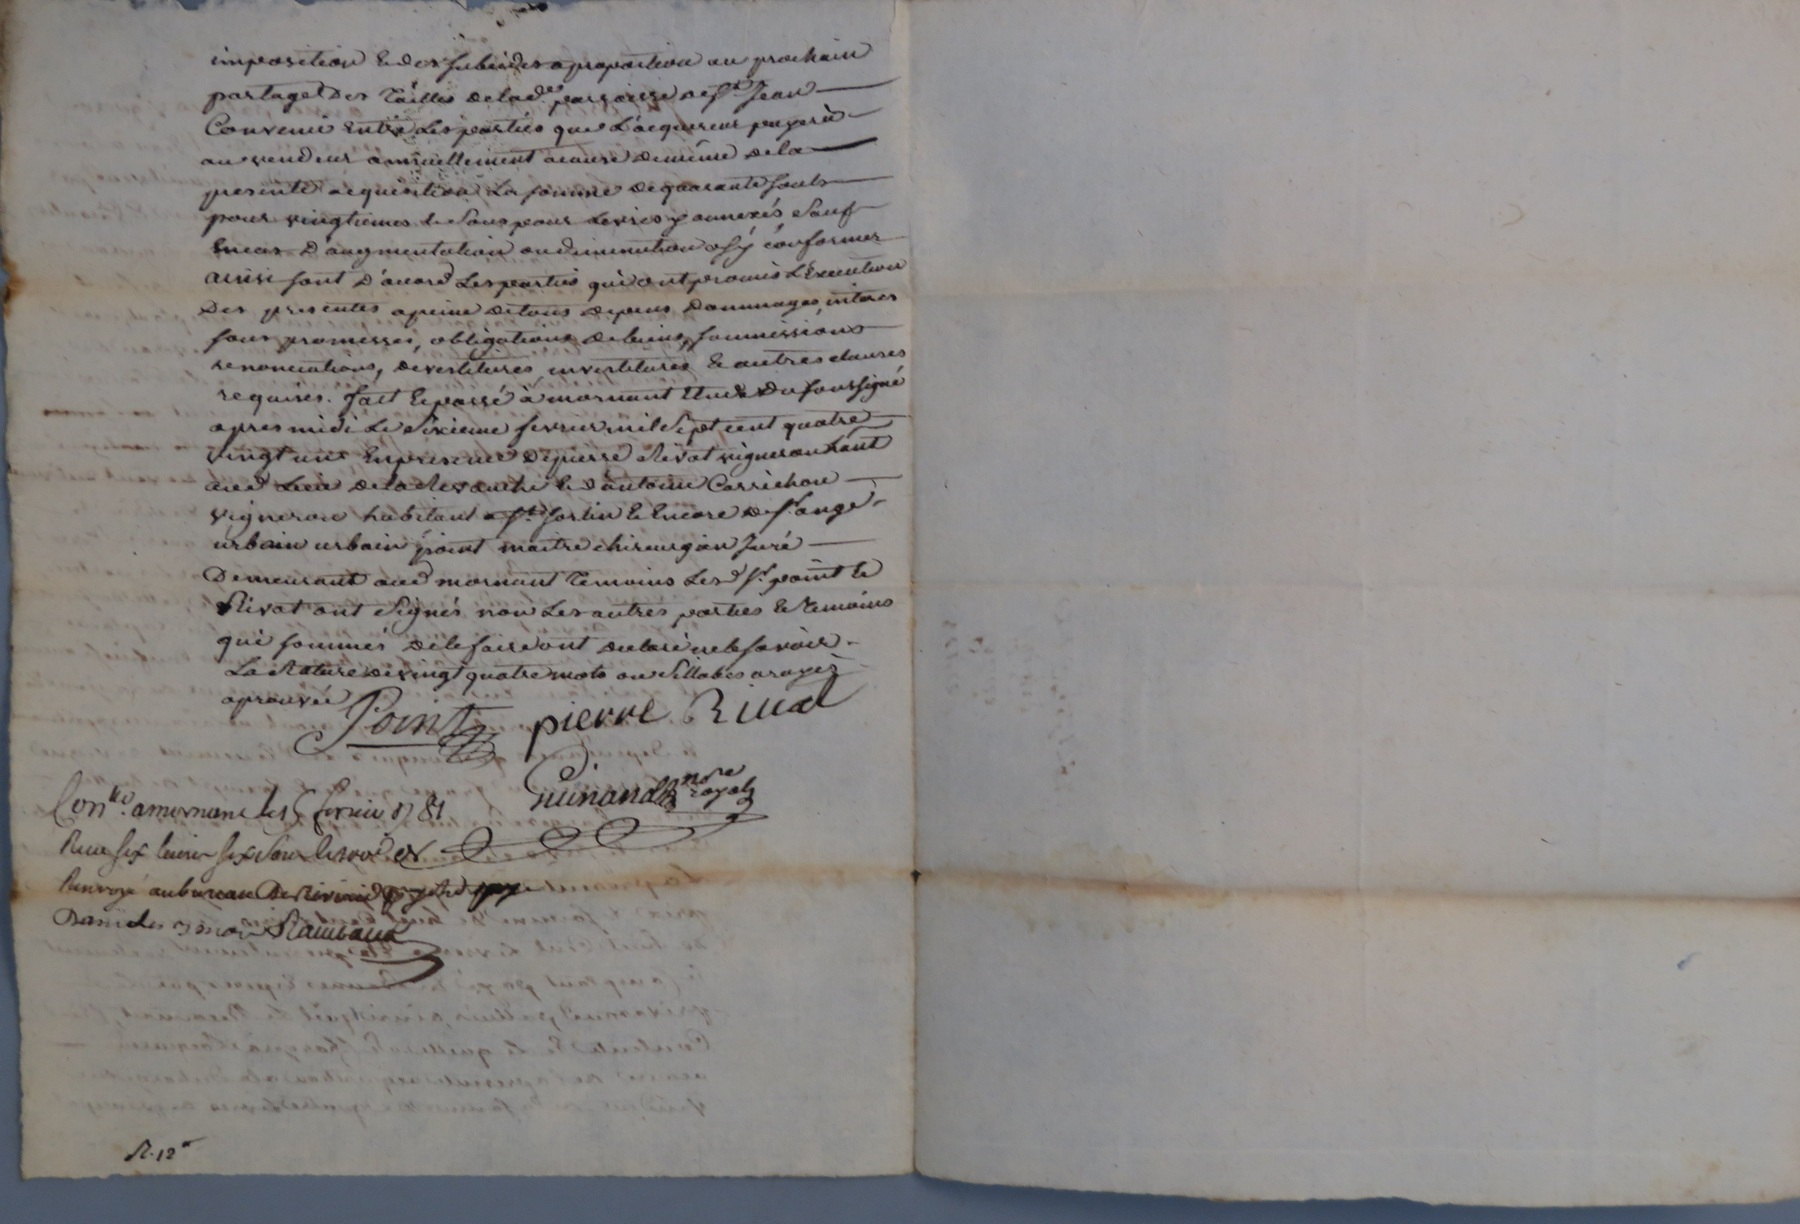 imposition & des subsides a proportion au prochain
partage des Tailles de lade. parroisse de st. Jean
Convenu Entre Les parties que L'acquereur payera
au vendeur annuellement acause de même de la
presente acquisition La somme de quarante sous
pour vingtiemes & sous pour Livres y annexés sauf
En cas D'augmentation ou diminution a s'y conformer
ainsi sont D'accord Les parties qui ont promis L'Execution
Des presentes a peine de tous depens dommages interes
sous promesses, obligations de biens, soumissions
renonciations, devestitures, investitures & autres clauses
requises. fait & passé à mornant Etude Du soussigné
apres midi Le Sixieme fevrier mil Sept cent quatre
vingt un En presence De pierre Rivat vigneron habt
aud Lieu de la & D'antoine Corrichon
vigneron habitant a st. sorlin & Encore de sr. ange
urbain urbain point maitre chirurgien Juré
Demeurant aud mornant Temoins Led. sr. point &
Rivat ont signés non Les autres parties & temoins
qui sommés de le faire ont declaré ne le savoir.
La Rature de vingt quatre mots ou Sillabes arayez
aprouvée
Point pierre Rivat
Guinand nore royal
Conlle. a mornant le 15 fevrier 1781
Recu six livres six sous
Renvoyé au bureau De
Dans les 3 mois Rambaud
R. 12